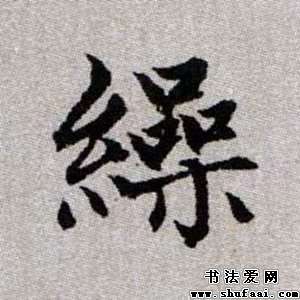 繰
书法爱网
www.shufaai.com